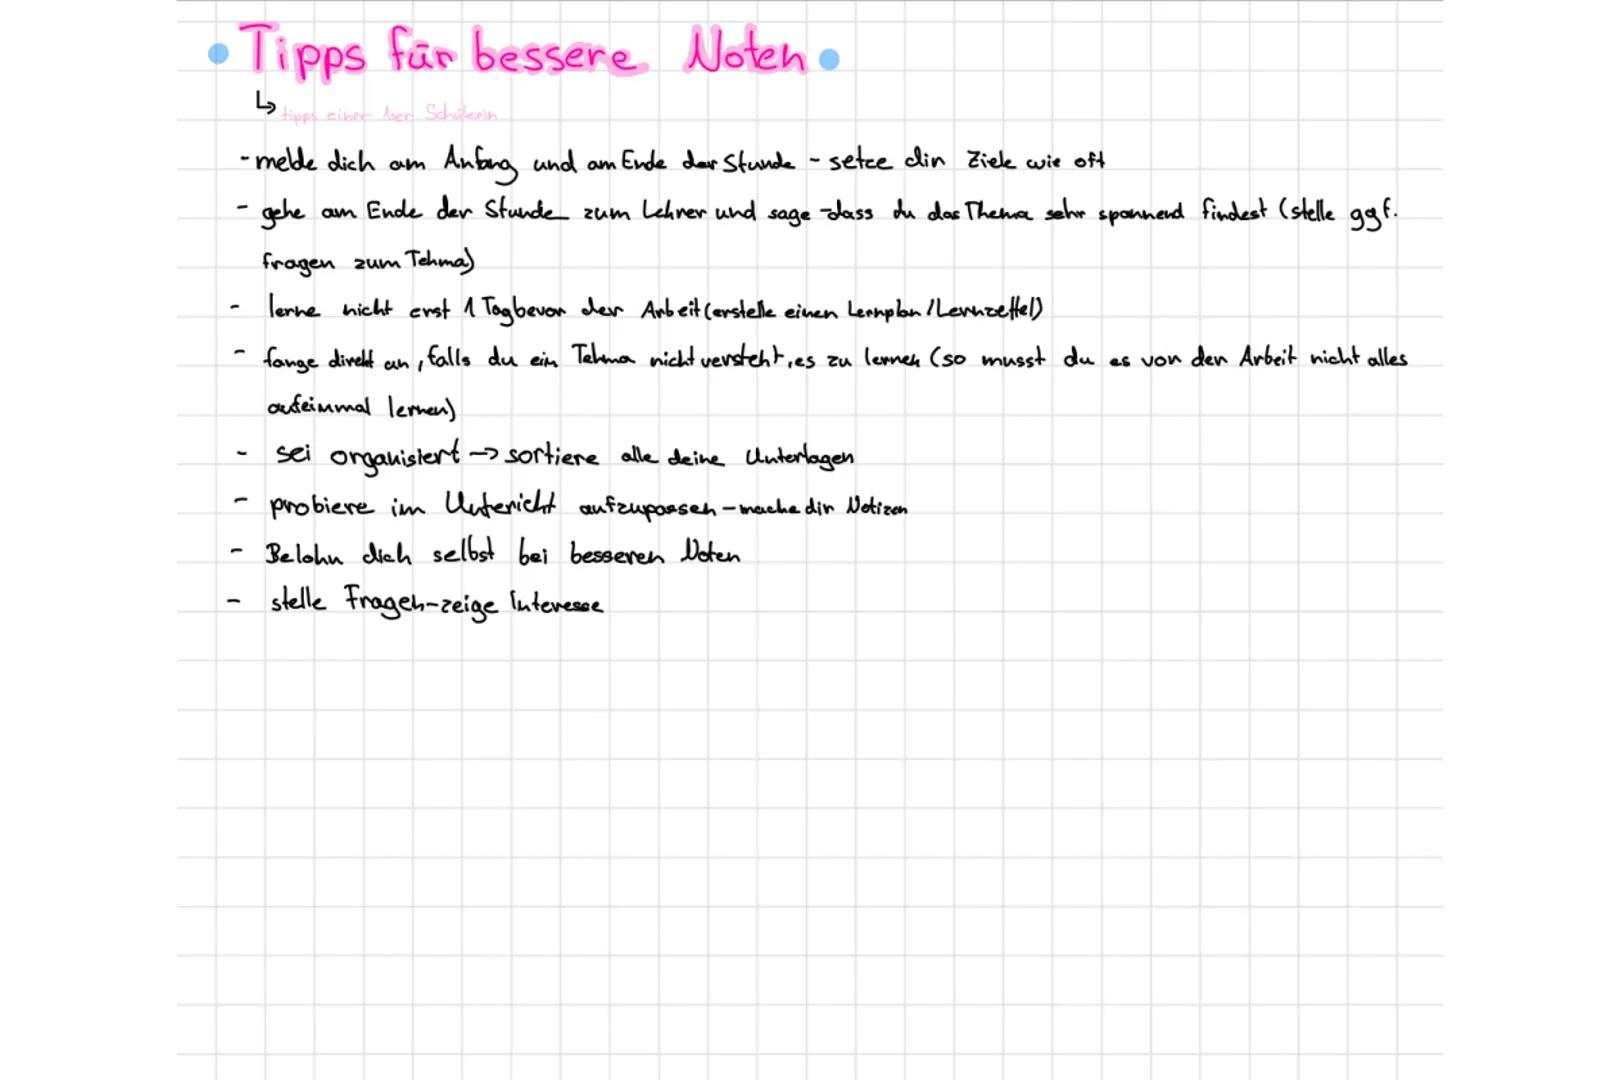 Tipps für bessere Noten
↳ tipps einer 1ser Schülerin
- melde dich am Anfang und am Ende der Stunde - setze dir Ziele wie oft
- gehe am Ende der Stunde zum Lehrer und sage dass du das Thema sehr spannend findest (stelle ggf.
fragen zum Tehma)
- lerne nicht erst 1 Tag bevor der Arbeit (erstelle einen Lernplan / Lernzettel)
- fange direkt an, falls du ein Tehma nicht versteht, es zu lernen (so musst du es vor der Arbeit nicht alles
aufeinmal lernen)
- sei organisiert → sortiere alle deine Unterlagen
- probiere im Untericht aufzupassen - mache dir Notizen
- Belohn dich selbst bei besseren Noten
- stelle Fragen - zeige Interesse